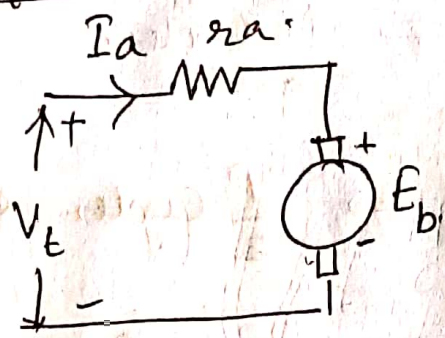 Ia ra.
+
+
Vt
Eb
-
-